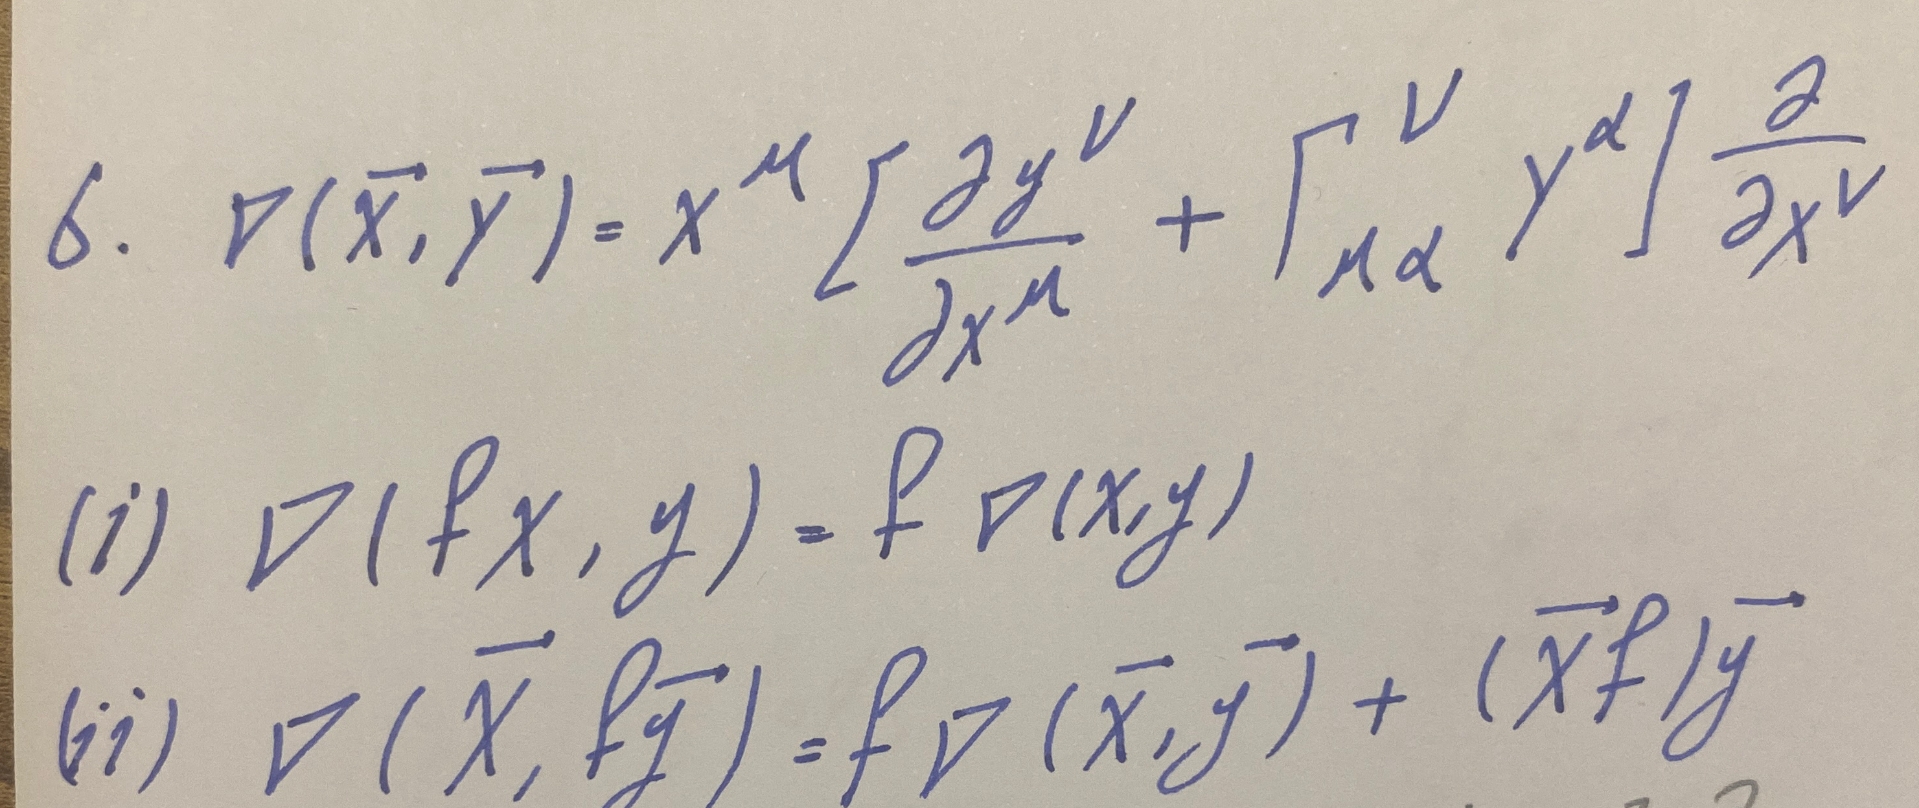 6. ∇(X⃗, Y⃗) = X^μ [∂y^ν/∂x^μ + Γ^ν_μα Y^α] ∂/∂x^ν
(i) ∇(fX, y) = f ∇(X,y)
(ii) ∇(X⃗, fy⃗) = f∇(X⃗,y⃗) + (X⃗f)y⃗